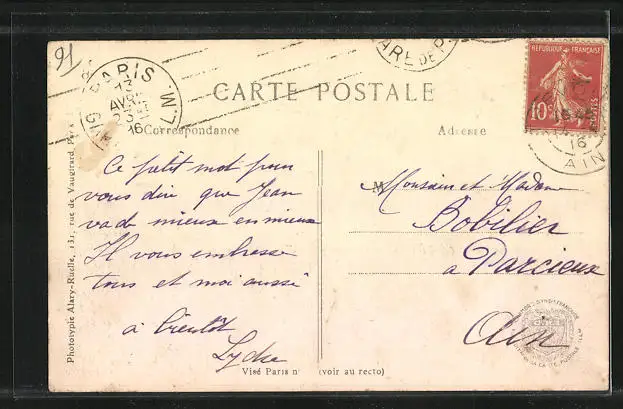 91
PARIS
13
AVRIL
16
GARE DE P
CARTE POSTALE
REPUBLIQUE FRANÇAISE
10c
POSTES
16
AIN
Correspondance
Adresse
Ce petit mot pour
vous dire que Jean
va de mieux en mieux
Il vous embrasse
tous et moi aussi
à bientôt
Lydie
M
Monsieur et Madame
Bobilier
à Parcieux
Ain
Visé Paris n (voir au recto)
Phototypie Alary-Ruelle, 131, rue de Vaugirard, Paris